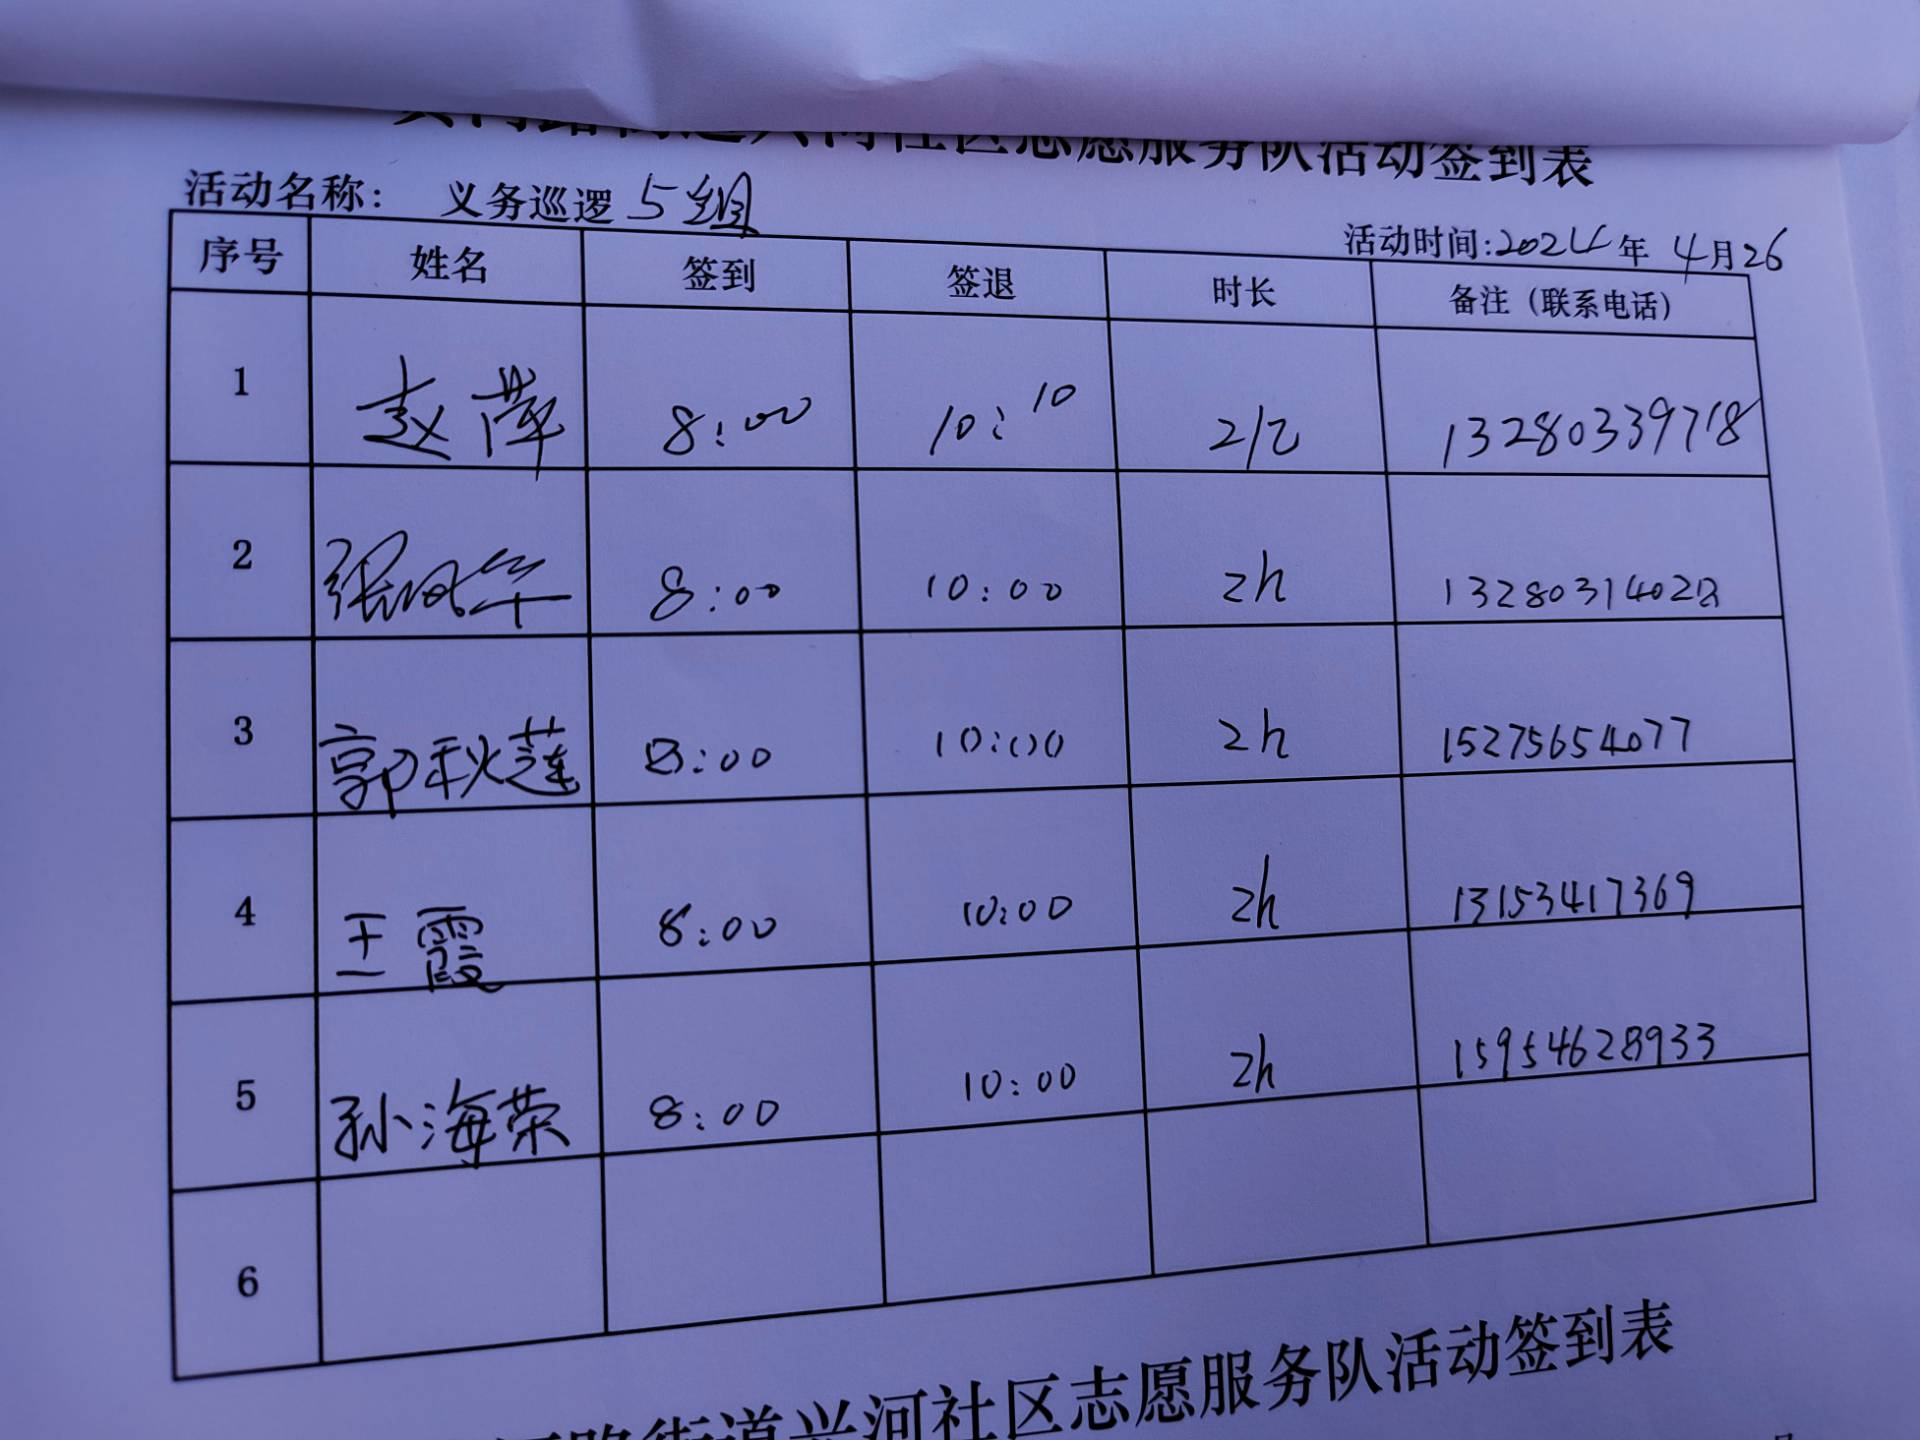 兴河社区志愿服务队活动签到表
活动名称: 义务巡逻5组
活动时间:2024年4月26
序号 姓名 签到 签退 时长 备注（联系电话）
1 赵萍 8:00 10:10 2h 13280339718
2 张凤华 8:00 10:00 2h
3 郭秋莲 8:00 10:00 2h 15275654077
4 王霞 8:00 10:00 2h 13153417369
5 孙海荣 8:00 10:00 2h 15954628933
6
路街道兴河社区志愿服务队活动签到表